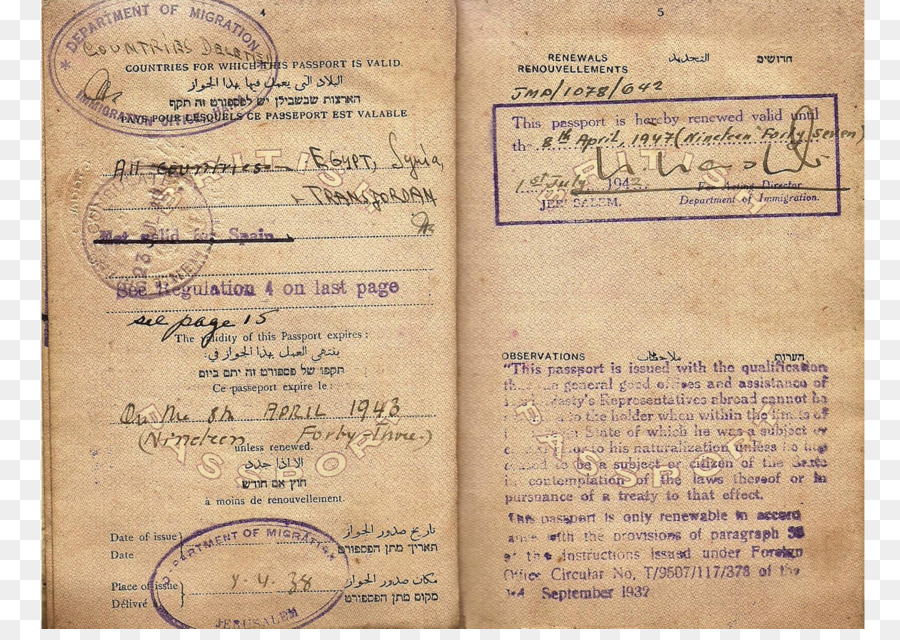 4
DEPARTMENT OF MIGRATION
COUNTRIES
IMMIGRATION
COUNTRIES FOR WHICH THIS PASSPORT IS VALID.
البلاد التي يعمل فيها بهذا الجواز
הארצות שבשבילן יש לפספורט זה תקף
PAYS POUR LESQUELS CE PASSEPORT EST VALABLE
All countries EGYPT, Syria,
& TRANSJORDAN
Not valid for Spain
See Regulation 4 on last page
see page 15
The validity of this Passport expires:
ينتهي العمل بهذا الجواز في:
תקפו של פספורט זה יתם ביום
Ce passeport expire le:
On the 8th APRIL 1943
(Nineteen Forty Three.)
unless renewed.
الا اذا جدد
חוץ אם חודש
à moins de renouvellement.
Date of issue تاريخ صدور الجواز
Date תאריך מתן הפספורט
Place of issue مكان صدور الجواز
Délivré à מקום מתן הפספורט
DEPARTMENT OF MIGRATION
9.4.38
JERUSALEM
5
RENEWALS التجديد חדושים
RENOUVELLEMENTS
JMA/1078/642
This passport is hereby renewed valid until
the 8th April, 1947 (Nineteen Forty Seven)
1st July 1942. Director
JERUSALEM. Department of Immigration.
OBSERVATIONS ملاحظات הערות
"This passport is issued with the qualification
that the general good offices and assistance of
His Majesty's Representatives abroad cannot be
to the holder when within the limits of
State of which he was a subject or
prior to his naturalization unless he has
ceased to be a subject or citizen of the State
in contemplation of the laws thereof or in
pursuance of a treaty to that effect.
This passport is only renewable in accord
ance with the provisions of paragraph
of the Instructions issued under Foreign
Office Circular No, T/9507/117/378 of the
September 1932